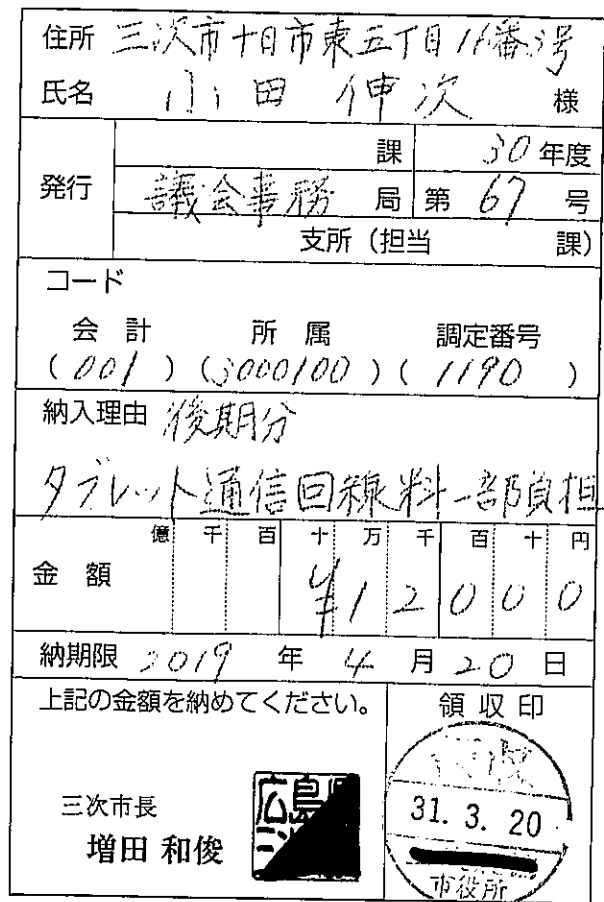 住所 三次市十日市東五丁目16番3号
氏名 小田 伸次 様
課 30年度
発行 議会事務 局 第 67 号
支所(担当 課)
コード
会計 所属 調定番号
(001)(3000100)(1190)
納入理由 後期分
タブレット通信回線料一部負担
億 千 百 十 万 千 百 十 円
金額 ¥12000
納期限 2019 年 4 月 20 日
上記の金額を納めてください。
領収印
三次市長
増田 和俊
広島
31. 3. 20
市役所